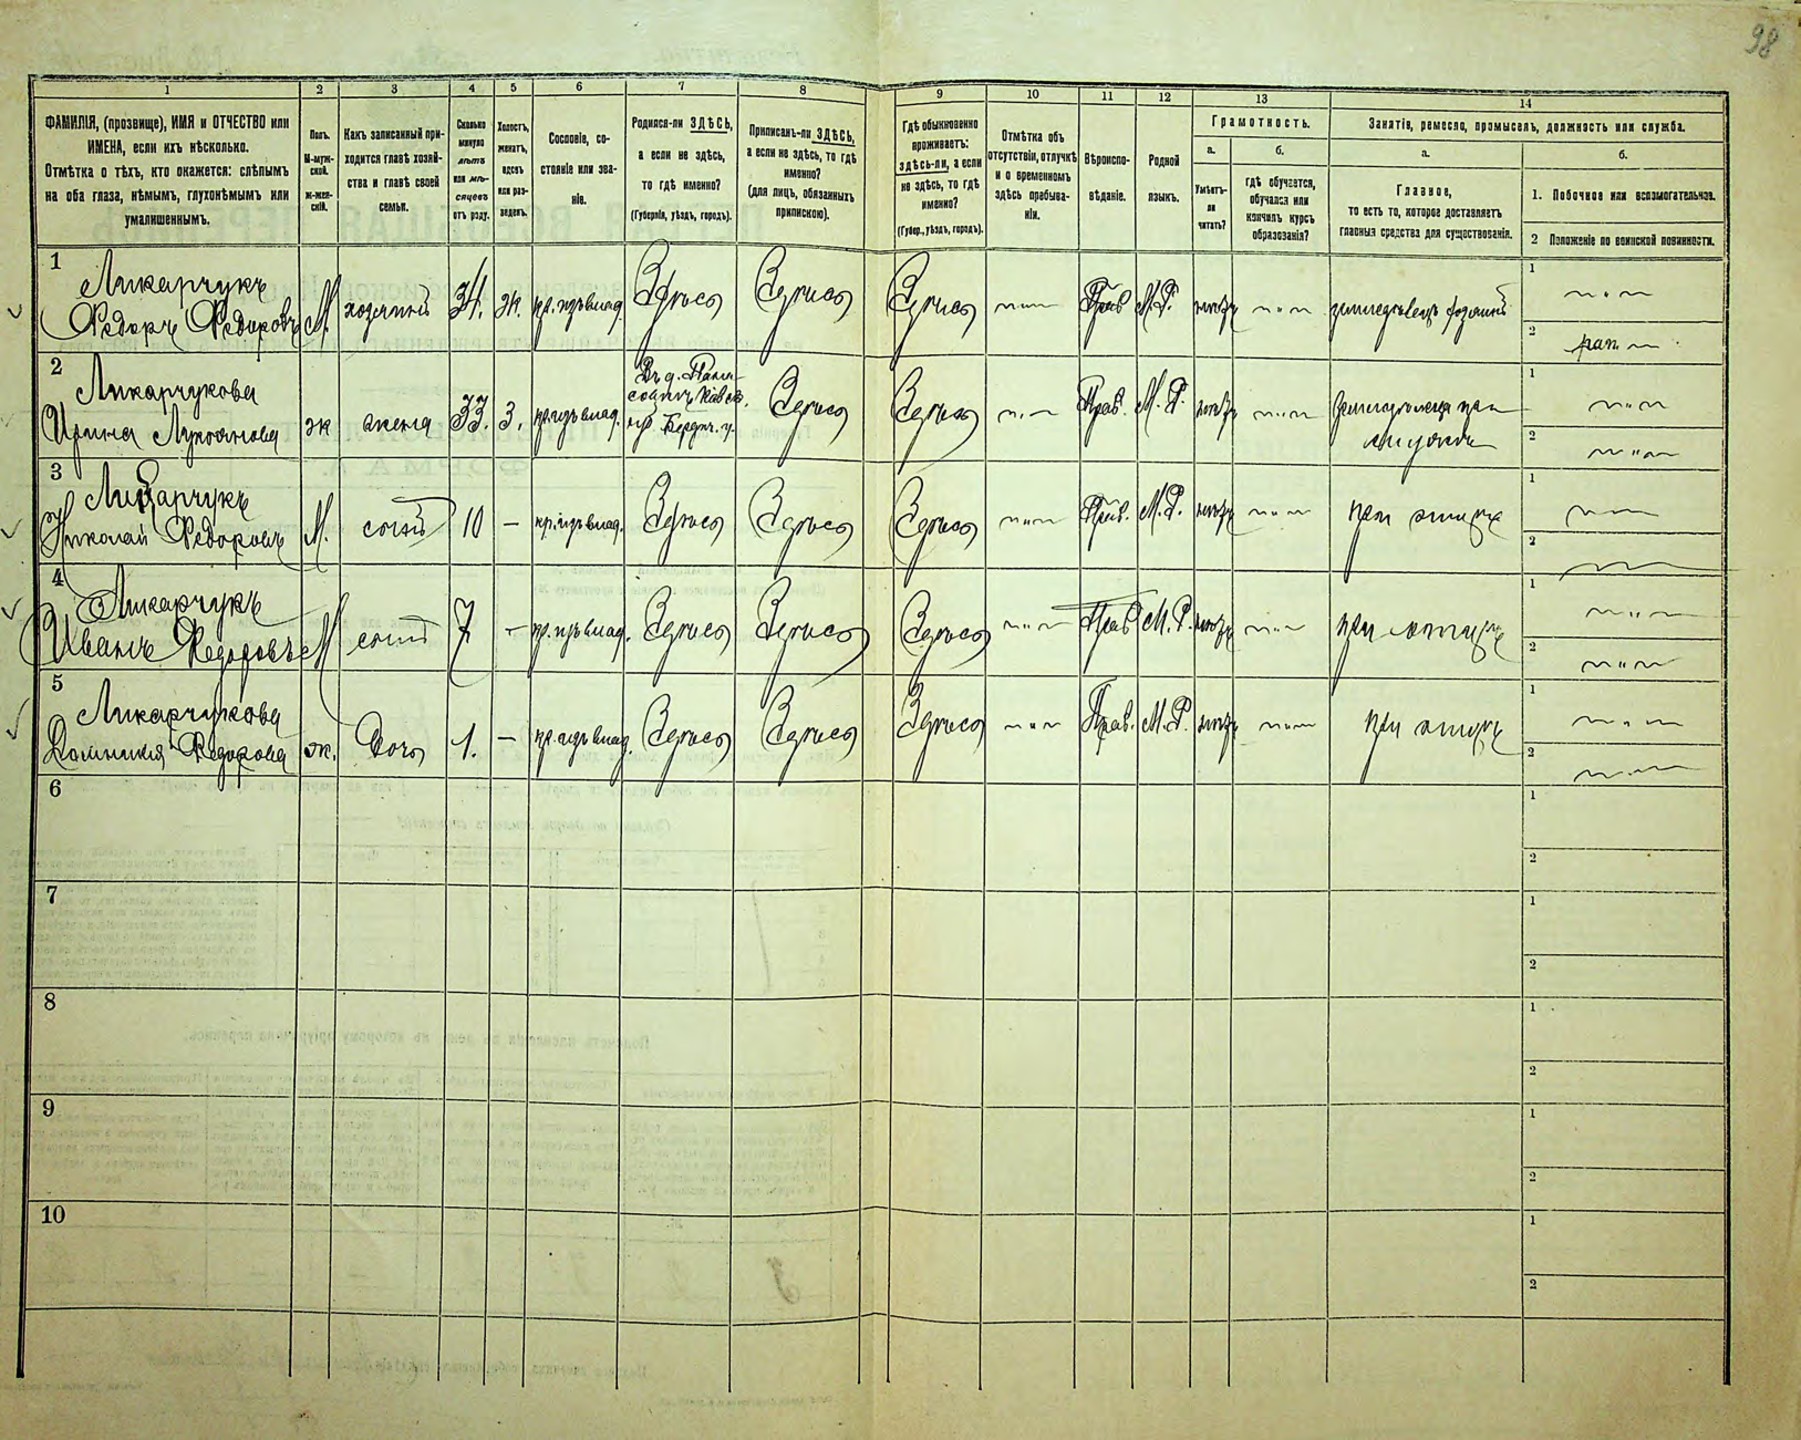 98
1 2 3 4 5 6 7 8 9 10 11 12 13 14
ФАМИЛІЯ, (прозвище), ИМЯ и ОТЧЕСТВО или
ИМЕНА, если ихъ нѣсколько.
Отмѣтка о тѣхъ, кто окажется: слѣпымъ
на оба глаза, нѣмымъ, глухонѣмымъ или
умалишеннымъ.
Полъ.
М-муж-
ской.
ж-жен-
скій.
Какъ записанный при-
ходится главѣ хозяй-
ства и главѣ своей
семьи.
Сколько
минуло
лѣтъ
или мѣ-
сяцевъ
отъ роду.
Холостъ,
женатъ,
вдовъ
или раз-
веденъ.
Сословіе, со-
стояніе или зва-
ніе.
Родился-ли ЗДѢСЬ,
а если не здѣсь,
то гдѣ именно?
(Губернія, уѣздъ, городъ).
Приписанъ-ли ЗДѢСЬ,
а если не здѣсь, то гдѣ
именно?
(для лицъ, обязанныхъ
припискою).
Гдѣ обыкновенно
проживаетъ:
здѣсь-ли, а если
не здѣсь, то гдѣ
именно?
(Губер., уѣздъ, городъ).
Отмѣтка объ
отсутствіи, отлучкѣ
и о временномъ
здѣсь пребыва-
ніи.
Вѣроиспо-
вѣданіе.
Родной
языкъ.
Грамотность.
а.
Умѣетъ-
ли
читать?
б.
гдѣ обучается,
обучался или
кончилъ курсъ
образованія?
Занятія, ремесло, промыселъ, должность или служба.
а.
Главное,
то есть то, которое доставляетъ
главныя средства для существованія.
б.
1. Побочное или вспомогательное.
2 Положеніе по воинской повинности.
1
Ликарчукъ
Федоръ Федоровъ
М. хозяинъ 34. ж. кр. изъ влад. Здѣсь Здѣсь Здѣсь Прав М.Р. хозяинъ
1
2
2
Ликарчукова
Ирина Лукьянова
ж жена 33. З. кр. изъ влад.
Бердич. у.
Здѣсь Здѣсь Прав. М.Р. при
1
2
3
Ликарчукъ
Николай Федоровъ
М. сынъ 10 – кр. изъ влад. Здѣсь Здѣсь Здѣсь Прав. М.Р. при отцѣ
1
2
4
Ликарчукъ
Иванъ Федоровъ
М сынъ 7 – кр. изъ влад. Здѣсь Здѣсь Здѣсь Прав М.Р. при отцѣ
1
2
5
Ликарчукова
Доминикия Федорова
ж. дочь 1. – кр. изъ влад. Здѣсь Здѣсь Здѣсь Прав. М.Р. при отцѣ
1
2
6
1
2
7
1
2
8
1
2
9
1
2
10
1
2